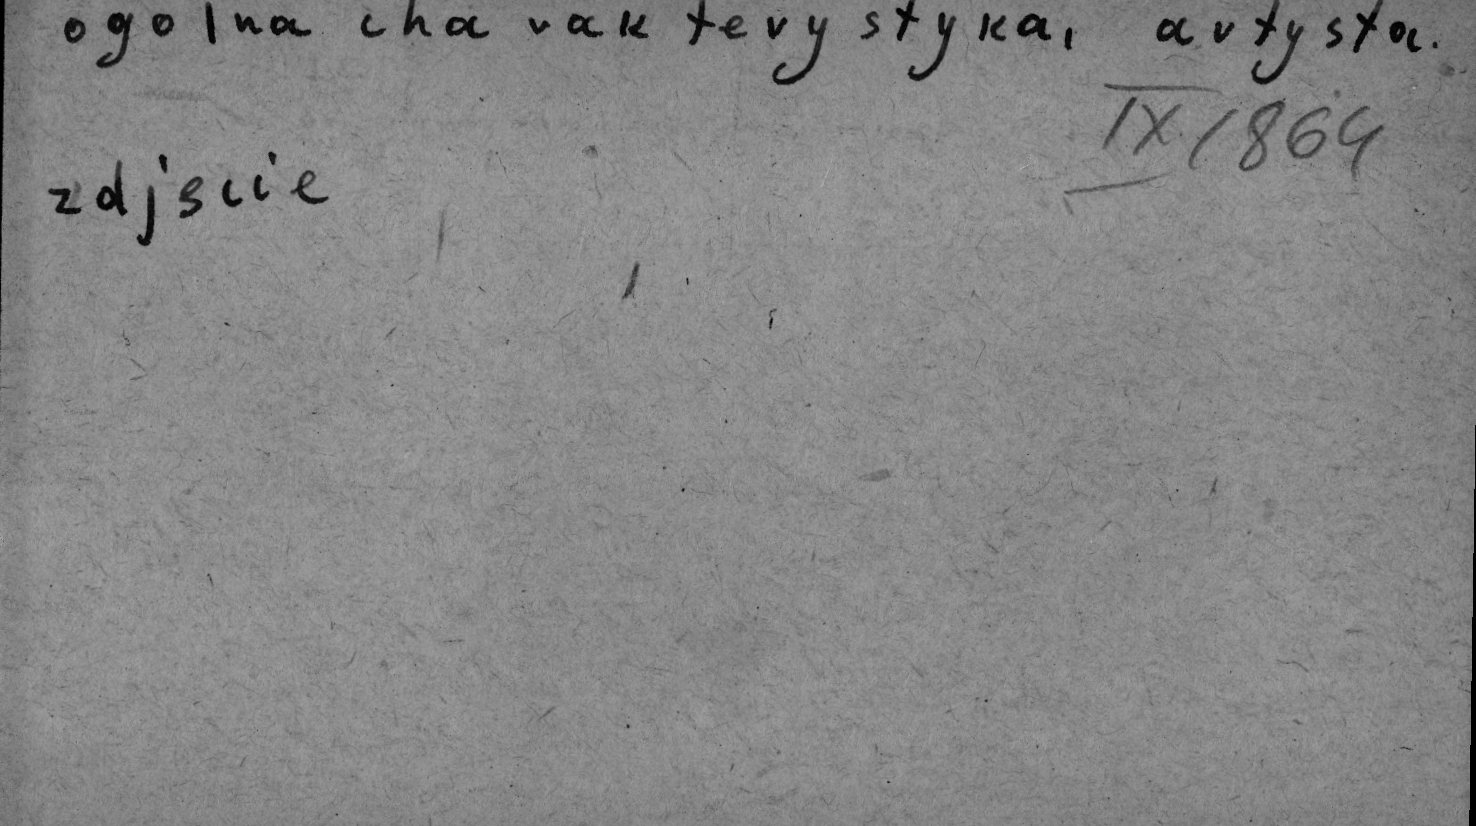 ogolna charakterystyka, artysta.
IX/864
zdjscie